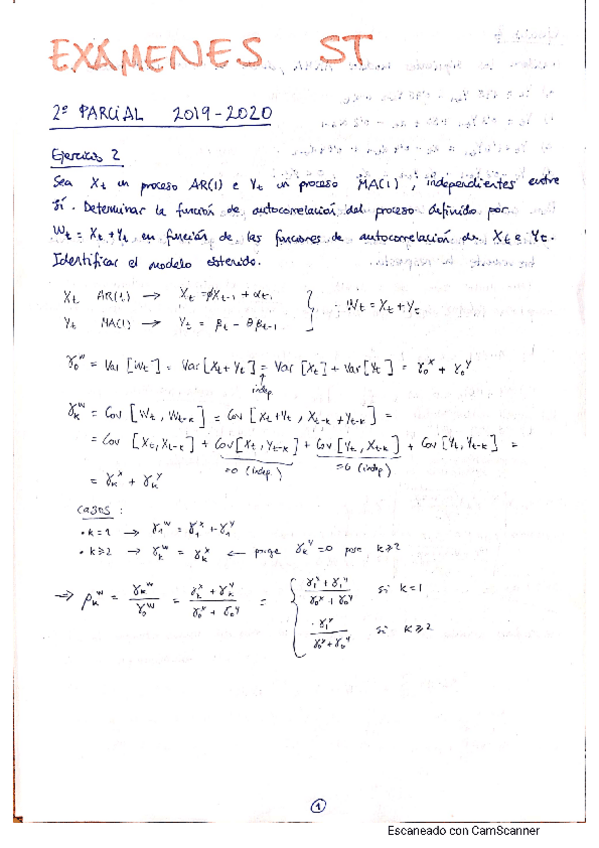 EXÁMENES ST
2º PARCIAL 2019-2020
Ejercicio 2
Sea Xt un proceso AR(1) e Yt un proceso MA(1), independientes entre
sí. Determinar la función de autocorrelación del proceso definido por
Wt = Xt + Yt en función de las funciones de autocorrelación de Xt e Yt.
Identificar el modelo obtenido.
Xt AR(1) → Xt = ϕXt-1 + αt. } Wt = Xt + Yt
Yt MA(1) → Yt = βt - θβt-1
γ₀ᵂ = Var [Wt] = Var [Xt + Yt] = Var [Xt] + Var [Yt] = γ₀ˣ + γ₀ʸ
indep.
γₖᵂ = Cov [Wt, Wt-k] = Cov [Xt + Yt, Xt-k + Yt-k] =
= Cov [Xt, Xt-k] + Cov [Xt, Yt-k] + Cov [Yt, Xt-k] + Cov [Yt, Yt-k] =
=0 (indep.) =0 (indep)
= γₖˣ + γₖʸ
casos:
• k=1 → γ₁ᵂ = γ₁ˣ + γ₁ʸ
• k≥2 → γₖᵂ = γₖˣ ← γₖʸ = 0 para k≥2
⇒ ρₖᵂ = γₖᵂ / γ₀ᵂ = (γₖˣ + γₖʸ) / (γ₀ˣ + γ₀ʸ) = { (γ₁ˣ + γ₁ʸ) / (γ₀ˣ + γ₀ʸ) si k=1
γ₁ˣ / (γ₀ˣ + γ₀ʸ) si k≥2
1
Escaneado con CamScanner